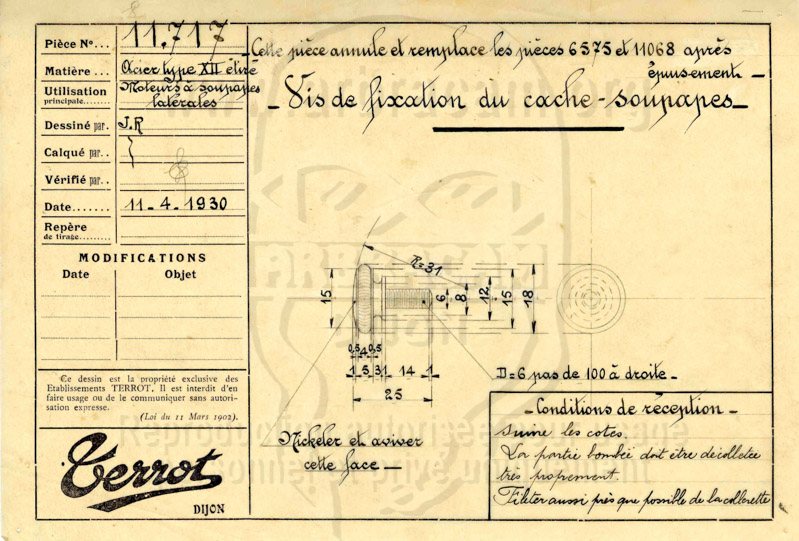 Pièce N°... 11.717
Matière... Acier type XII étiré
Utilisation principale....... Moteurs à soupapes latérales
Dessiné par. J.R
Calqué par..
Vérifié par..
Date....... 11-4-1930
Repère de tirage.........
MODIFICATIONS
Date Objet
Ce dessin est la propriété exclusive des
Etablissements TERROT. Il est interdit d'en
faire usage ou de le communiquer sans autori-
sation expresse.
(Loi du 11 Mars 1902).
Terrot
DIJON
Cette pièce annule et remplace les pièces 6575 et 11068 après
épuisement _
_ Vis de fixation du cache-soupapes _
R=31
15
6
8
12
15
18
0,5 4 0,5
1 5 3 1 14 1
25
D=6 pas de 100 à droite _
Nickeler et aviver
cette face _
_ Conditions de réception _
suivre les cotes.
La partie bombée doit être décolletée
très proprement.
Fileter aussi près que possible de la collerette